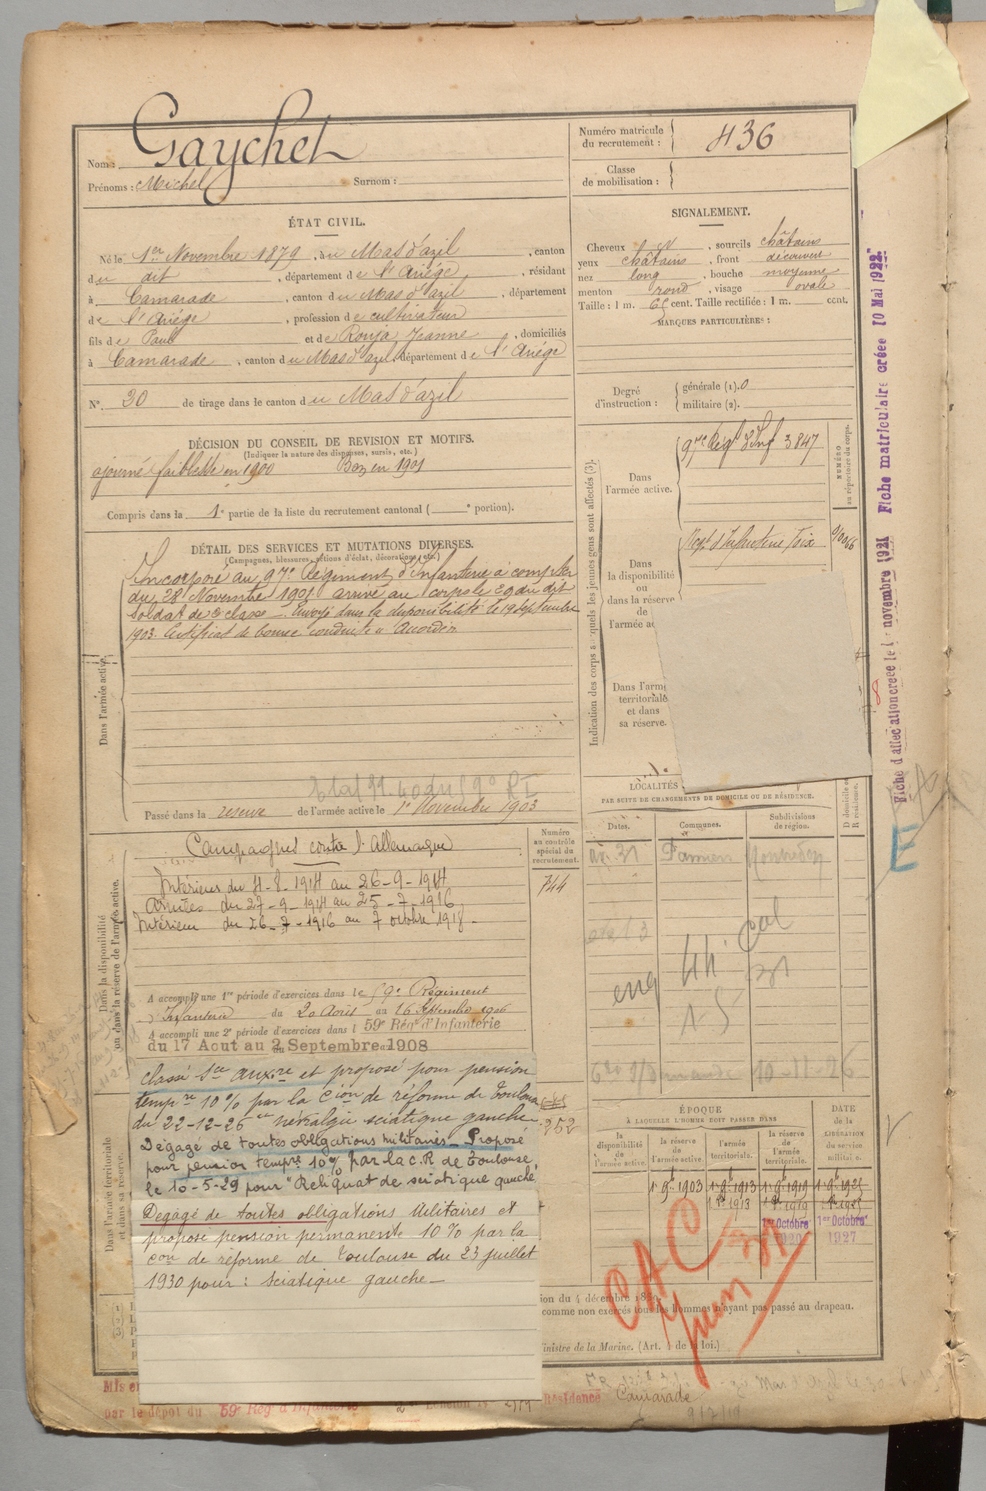 Nom : Gaychet
Prénoms : Michel Surnom :
Numéro matricule du recrutement : 436
Classe de mobilisation :
ÉTAT CIVIL.
Né le 1er Novembre 1879, au Mas d'azil, canton
du dit, département de l'Ariège, résidant
à Camarade, canton du Mas d'azil, département
de l'Ariège, profession de cultivateur
fils de Paul et de Rouja Jeanne, domiciliés
à Camarade, canton du Mas d'azil, département de l'Ariège
N° 30 de tirage dans le canton du Mas d'azil
SIGNALEMENT.
Cheveux, sourcils châtains
yeux châtains, front découvert
nez long, bouche moyenne
menton rond, visage ovale
Taille : 1 m. 65 cent. Taille rectifiée : 1 m. cent.
MARQUES PARTICULIÈRES :
Degré d'instruction : générale (1). 0
militaire (2).
DÉCISION DU CONSEIL DE REVISION ET MOTIFS.
(Indiquer la nature des dispenses, sursis, etc.)
ajourné faiblesse en 1900 Bon en 1901
Compris dans la 1e partie de la liste du recrutement cantonal ( e portion).
DÉTAIL DES SERVICES ET MUTATIONS DIVERSES.
(Campagnes, blessures, actions d'éclat, décorations, etc.)
Dans l'armée active.
Incorporé au 97e Régiment d'Infanterie à compter
du 28 Novembre 1901 arrivé au corps le 29 du dit
soldat de 2e classe. Envoyé dans la disponibilité le 19 septembre
1903. Certificat de bonne conduite « Accordé »
Passé dans la reserve de l'armée active le 1er Novembre 1903
Indication des corps auxquels les jeunes gens sont affectés (3).
NUMÉRO au répertoire du corps.
Dans l'armée active.
97e Régt d'Inf 3847
Dans la disponibilité ou dans la réserve de l'armée ac
Régt d'Infanterie Foix
Dans l'armé territoriale et dans sa réserve.
LOCALITÉS
PAR SUITE DE CHANGEMENTS DE DOMICILE OU DE RÉSIDENCE.
Dates. Communes. Subdivisions de région. D domicile ou R résidence.
Pamiers
Dans la disponibilité ou dans la réserve de l'armée active.
Numéro au contrôle spécial du recrutement.
744
Campagnes contre l'Allemagne
Intérieur du 4-8-1914 au 26-9-1914
Armées du 27-9-1914 au 25-7-1916
Intérieur du 26-7-1916 au 7 octobre 1918
A accompli une 1re période d'exercices dans le 59e Régiment
d'Infanterie du 20 Août au 16 Septembre 1906
A accompli une 2e période d'exercices dans l 59e Régt d'Infanterie
du 17 Aout au 2 Septembre 1908
Dans l'armée territoriale et dans sa réserve.
Classé Sce auxre et proposé pour pension
tempre 10% par la Cion de réforme de Toulouse
du 22-12-26 névralgie sciatique gauche
Dégagé de toutes obligations militaires. Proposé
pour pension tempre 10% par la C.R de Toulouse
le 10-5-29 pour "Reliquat de sciatique gauche
Dégagé de toutes obligations militaires et
proposé pension permanente 10% par la
con de réforme de Toulouse du 23 juillet
1930 pour : sciatique gauche
252
ÉPOQUE
À LAQUELLE L'HOMME DOIT PASSER DANS
DATE DE LA LIBÉRATION du service militaire.
la disponibilité de l'armée active. la réserve de l'armée active. l'armée territoriale. la réserve de l'armée territoriale.
1er 9bre 1903 1er 9bre 1913 1er 9bre 1919 1er 9bre 1925
1er Octobre 1920 1er Octobre 1927
CAC
Juin 31
comme non exercés tous les hommes n'ayant pas passé au drapeau.
Ministre de la Marine. (Art. 4 de la loi.)
par le dépôt du 59e Régt d'Infanterie
Résidence Camarade
Fiche matriculaire créée 10 Mai 1922.
Fiche d'affectation créée le novembre 1921
E